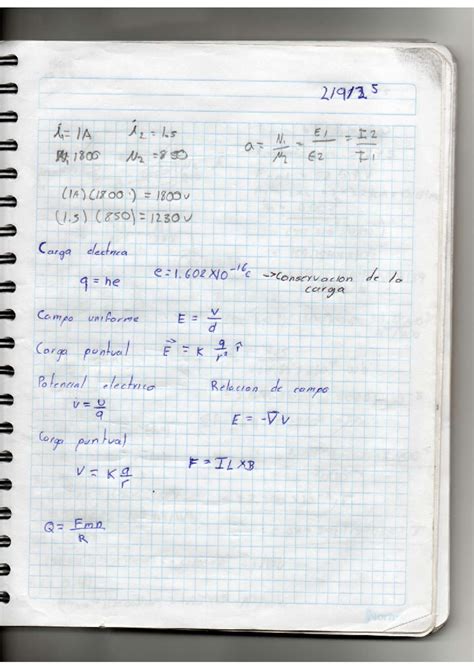 2/9/25
i₁= 1A i₂ = 1.5
N₁ 1800 N₂ = 850
a = N₁/N₂ = E1/E2 = I2/I1
(1A)(1800) = 1800v
(1.5) (850) = 1230v
Carga electrica
q = ne e = 1.602 X10⁻¹⁶c → Conservacion de la carga
Campo uniforme E = V/d
Carga puntual E⃗ = K q/r² r̂
Potencial electrico Relacion de campo
v = u/q E = -∇V
Carga puntual
V = K q/r F = IL×B
Q = Fmn/R
Norma